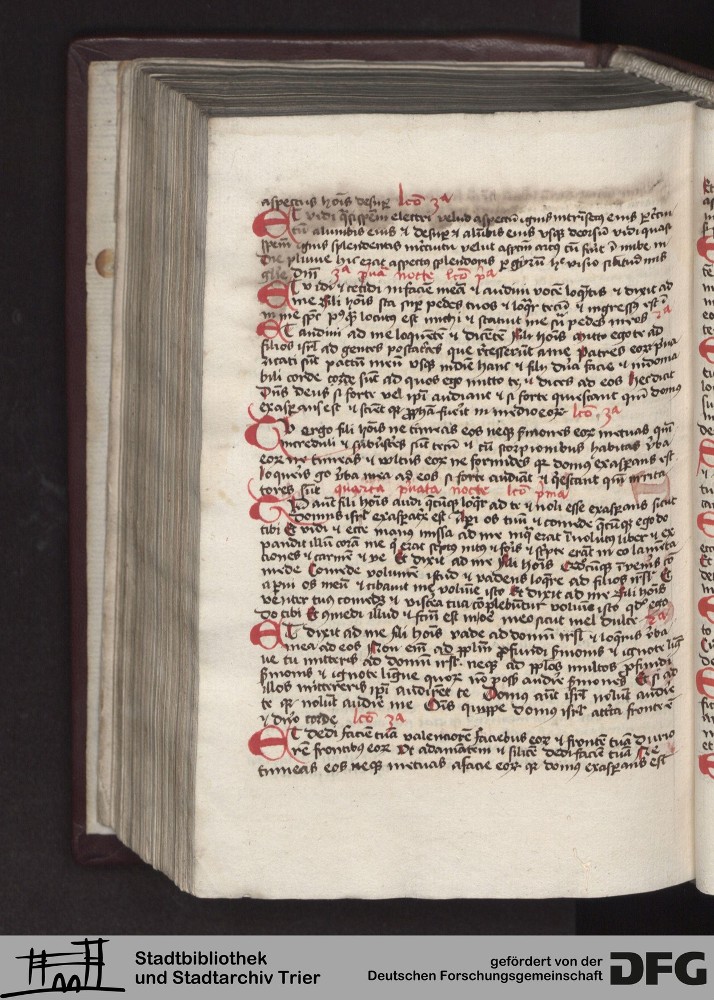 aspectus hois desup lco 3a
Et vidi qsi spem electri velud aspectu ignis intrisecus eius p
lumbis eius & desup & a lubis eius usq deorsu vidi quasi
spem ignis splendentis in circuitu velut aspcm arcus cu fuit i nube in
die pluvie hic erat aspectus splendoris p giru hec visio silitudinis
glie dni 3a nocte lco pa
Et vidi & cecidi in facie mea & audivi voce loquetis & dixit ad
me fili hois sta sup pedes tuos & loqr tecu & ingressus est i
me spc locutus est michi & statuit me su pedes meos 2a
Et audivi ad me loquete & dicete fili hois mitto ego te ad
filios isrl ad gentes apostatrices que recesserut a me patres eor pva
ricati sut pactu meu usq in die hanc & filii dura facie & indoma
bili corde sut ad quos ego mitto te & dices ad eos hec dicit
dns deus si forte vel ipi audiant & si forte quiescant qm domus
exasperans est & scient qr ppha fuerit in medio eor lco 3a
Tu ergo fili hois ne timeas eos neq smones eor metuas qm
increduli & subversores sut tecu & cu scorpionibus habitas vba
eor ne timeas & vultus eor ne formides qr domus exasperans est
loqueris go vba mea ad eos si forte audiat & qescant qm irrita
tores sut quarta pvata nocte lco pma
Tu aut fili hois audi qcuq loqr ad te & noli esse exasperans sicut
domus isrl exasperatrix est Aperi os tuu & comede qcuq ego do
tibi Et vidi & ecce manus missa ad me in q erat involutus liber & ex
pandit illu cora me q erat scptus intus & foris & scpte erat in eo lameta
tiones & carme & ve Et dixit ad me fili hois qdcuq iveneris co
mede Comede volume istud & vadens loqre ad filios isrl Et
aperui os meu & cibavit me volumie isto Et dixit ad me fili hois
venter tuus comedet & viscera tua coplebuntur volumie isto qd ego
do tibi Et comedi illud & fcm est in ore meo sicut mel dulce 2a
Et dixit ad me fili hois vade ad domu isrl & loqueris vba
mea ad eos Non eni ad pplm profundi smonis & ignote lig
ue tu mitteris ad domu isrl neq ad pplos multos profundi
smonis & ignote ligue quor no possis audire smones Et si ad
illos mittereris ipi audiret te Domus aut isrl nolut audire
te qr nolut audire me Ois quippe domus isrl attrita fronte e
& duro corde lco 3a
Et dedi facie tua valentiore faciebus eor & fronte tua durio
re frontibus eor Ut adamantem & silice dedi facie tua Ne
timeas eos neq metuas a facie eor qr domus exasperans est
Stadtbibliothek
und Stadtarchiv Trier
gefördert von der
Deutschen Forschungsgemeinschaft
DFG